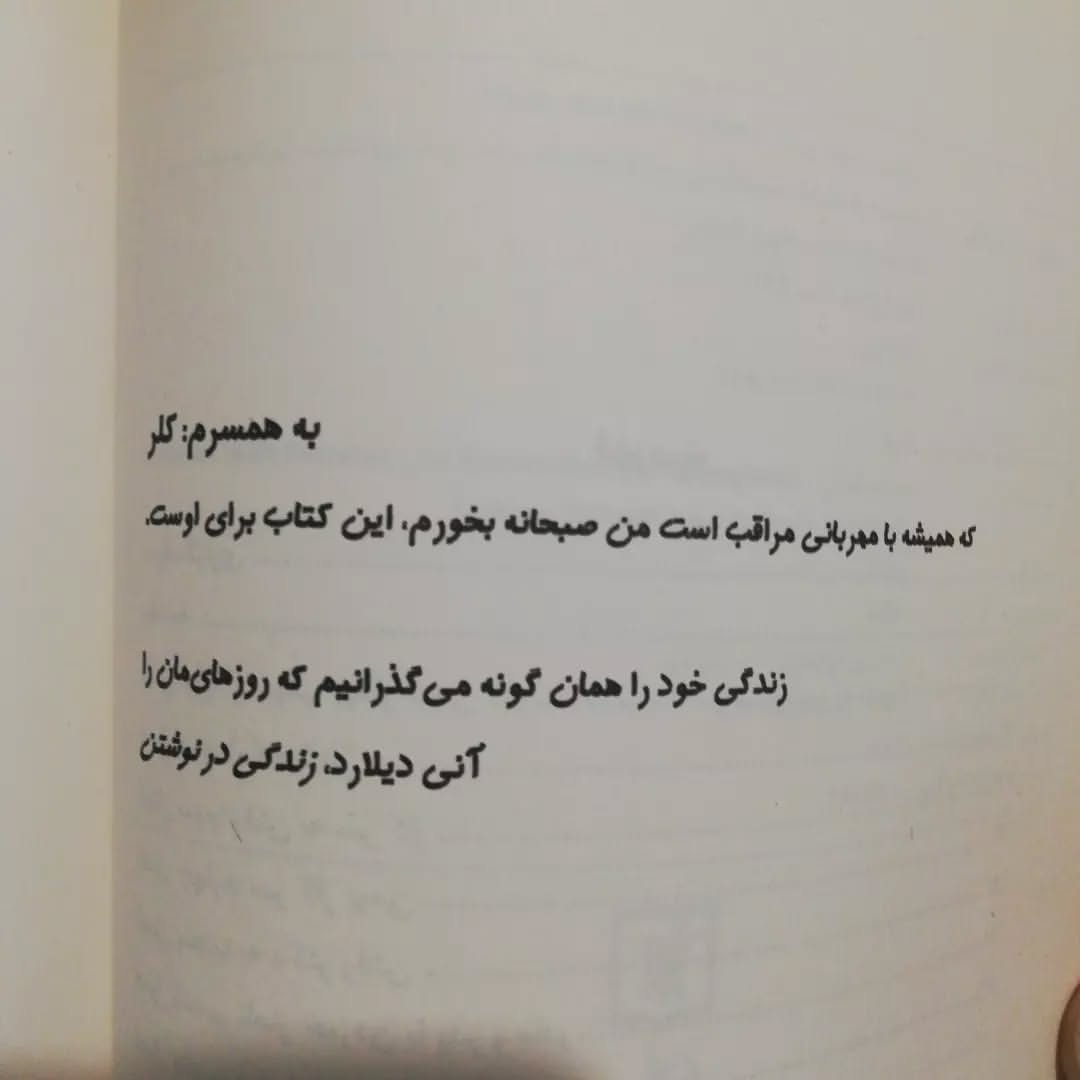 به همسرم: کلر
که همیشه با مهربانی مراقب است من صبحانه بخورم. این کتاب برای اوست.
زندگی خود را همان گونه می‌گذرانیم که روزهای‌مان را
آنی دیلارد، زندگی در نوشتن